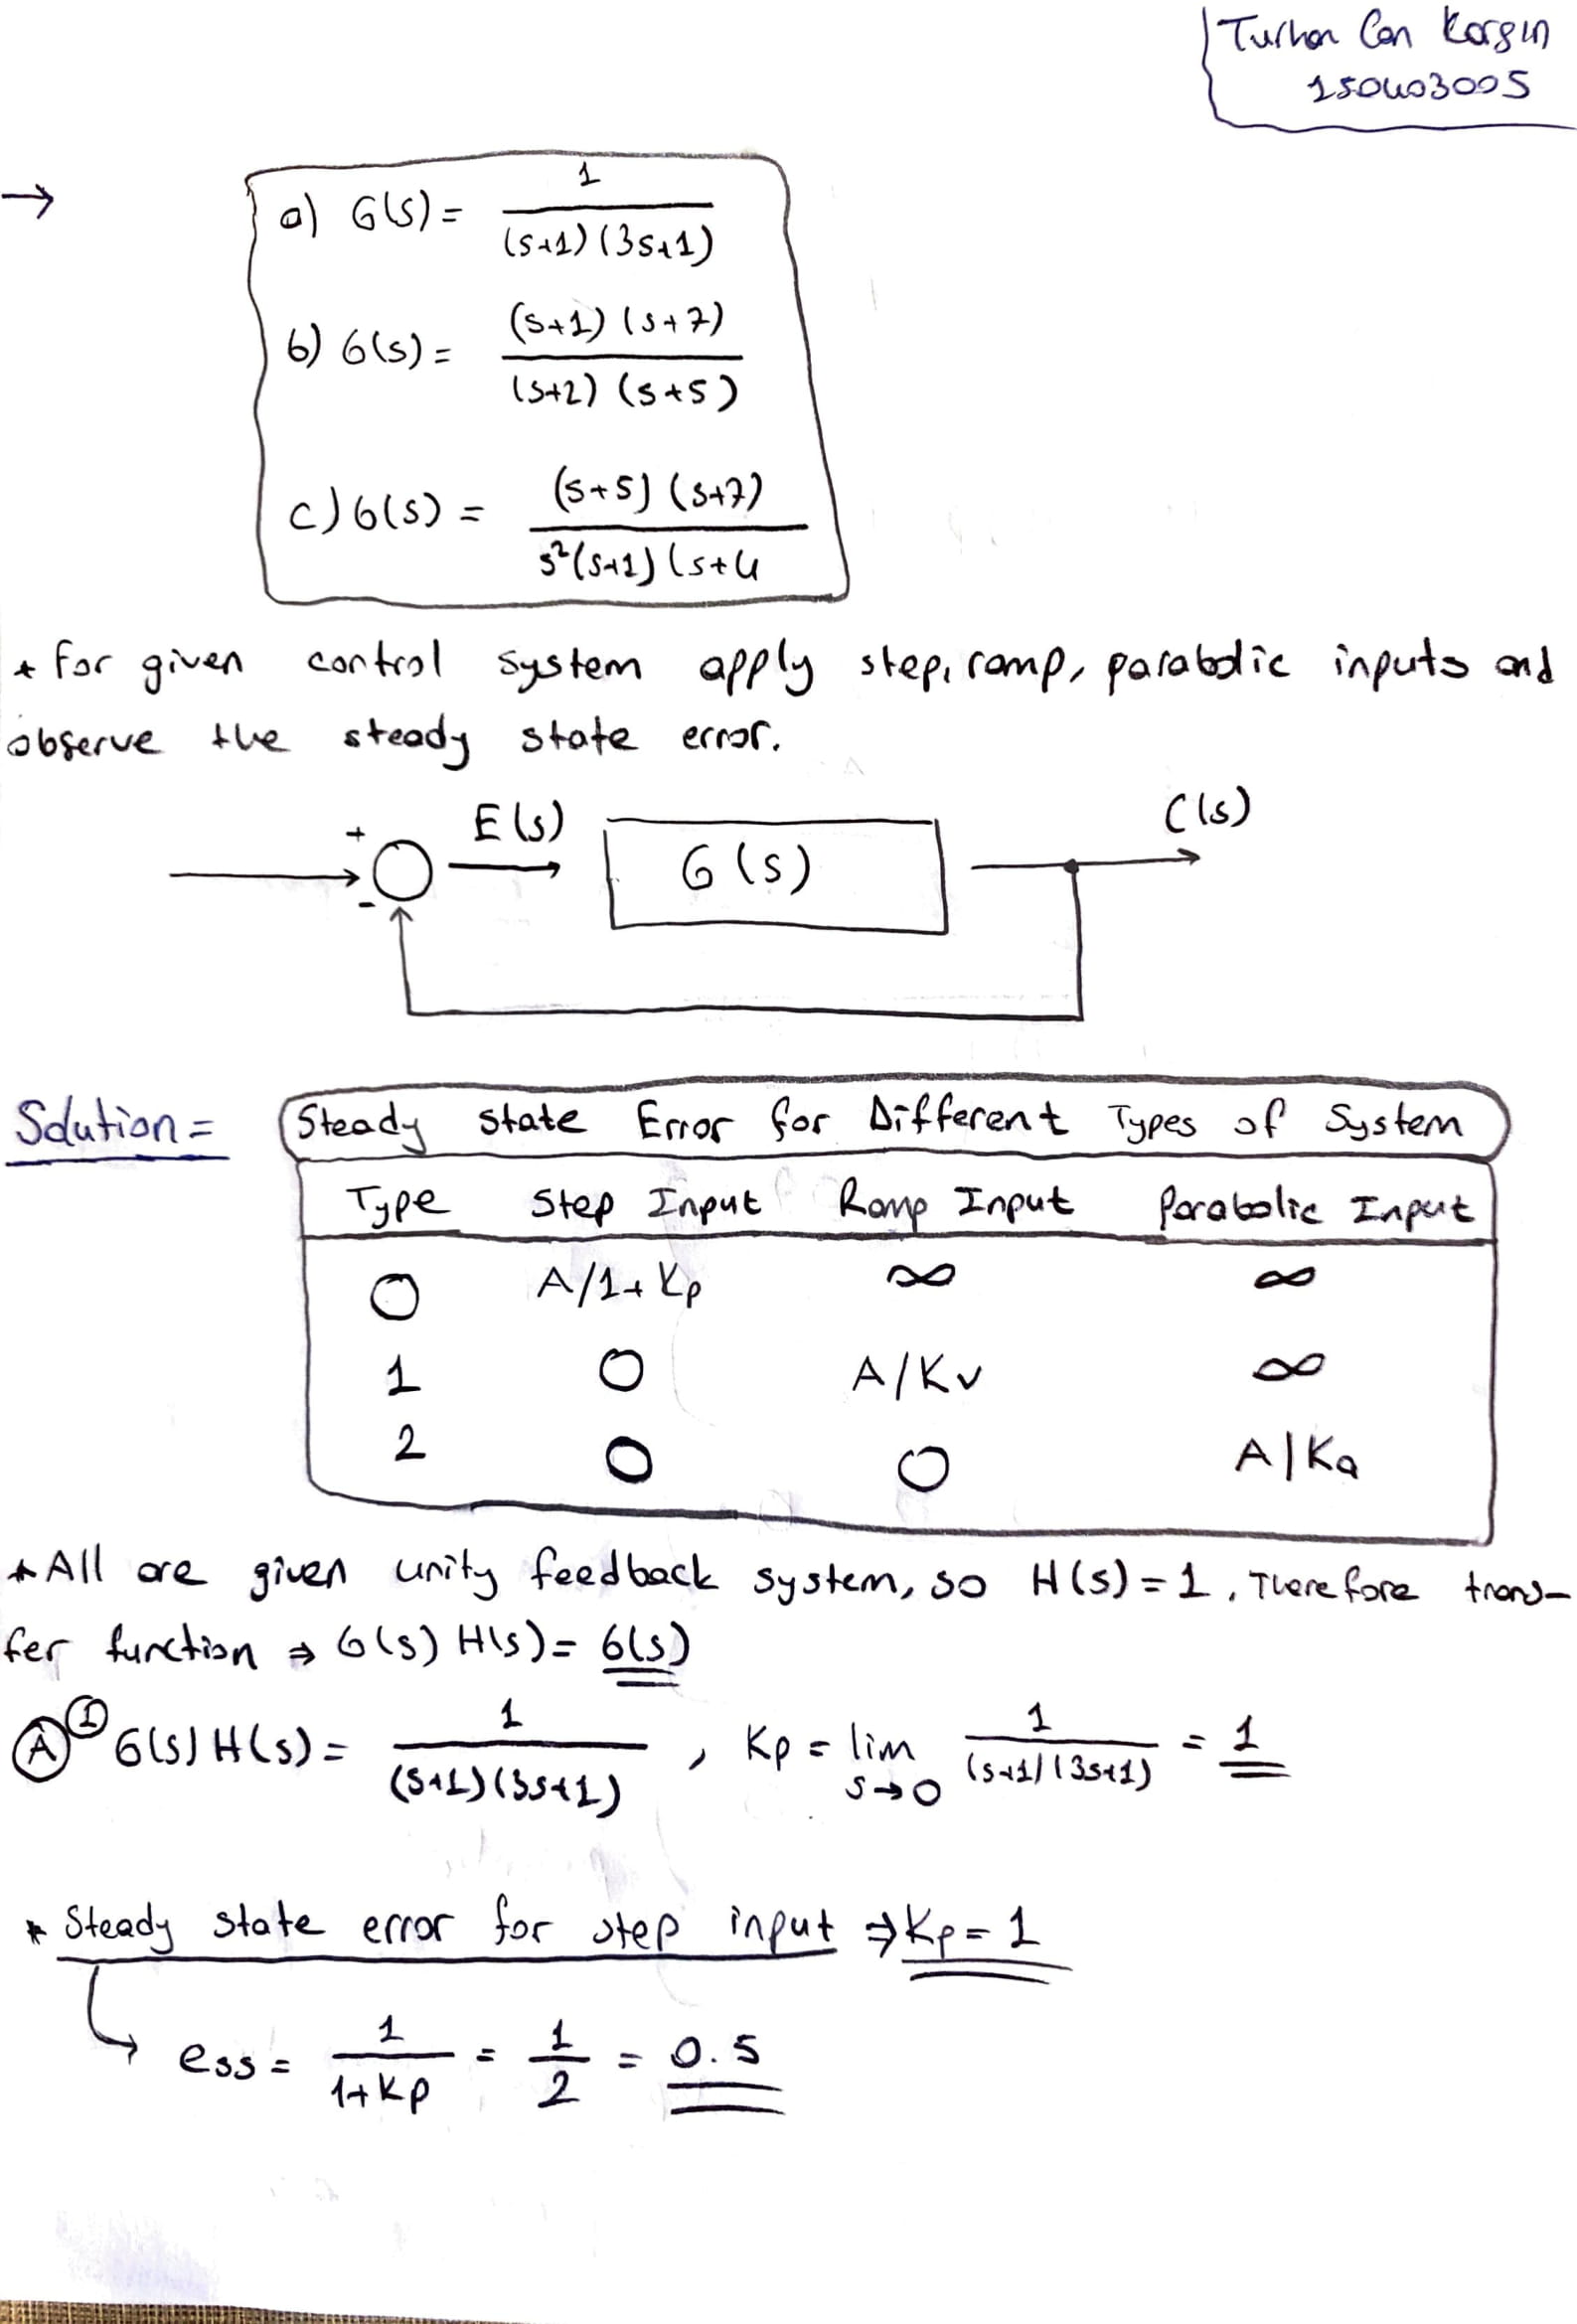 Turhan Can Kargın
150403005
→ a) G(s) = 1 / (s+1)(3s+1)
b) G(s) = (s+1)(s+7) / (s+2)(s+5)
c) G(s) = (s+5)(s+7) / s²(s+1)(s+4
* For given control system apply step, ramp, parabolic inputs and
observe the steady state error.
+ - E(s) G(s) C(s)
Solution = Steady state Error for Different Types of System
Type Step Input Ramp Input Parabolic Input
0 A/1+Kp ∞ ∞
1 0 A/Kv ∞
2 0 0 A/Ka
* All are given unity feedback system, so H(s) = 1, Therefore trans-
fer function ⇒ G(s) H(s) = G(s)
A ① G(s) H(s) = 1 / (s+1)(3s+1) , Kp = lim s→0 1 / (s+1)(3s+1) = 1
* Steady state error for step input ⇒ Kp = 1
ess = 1 / 1+Kp = 1/2 = 0.5